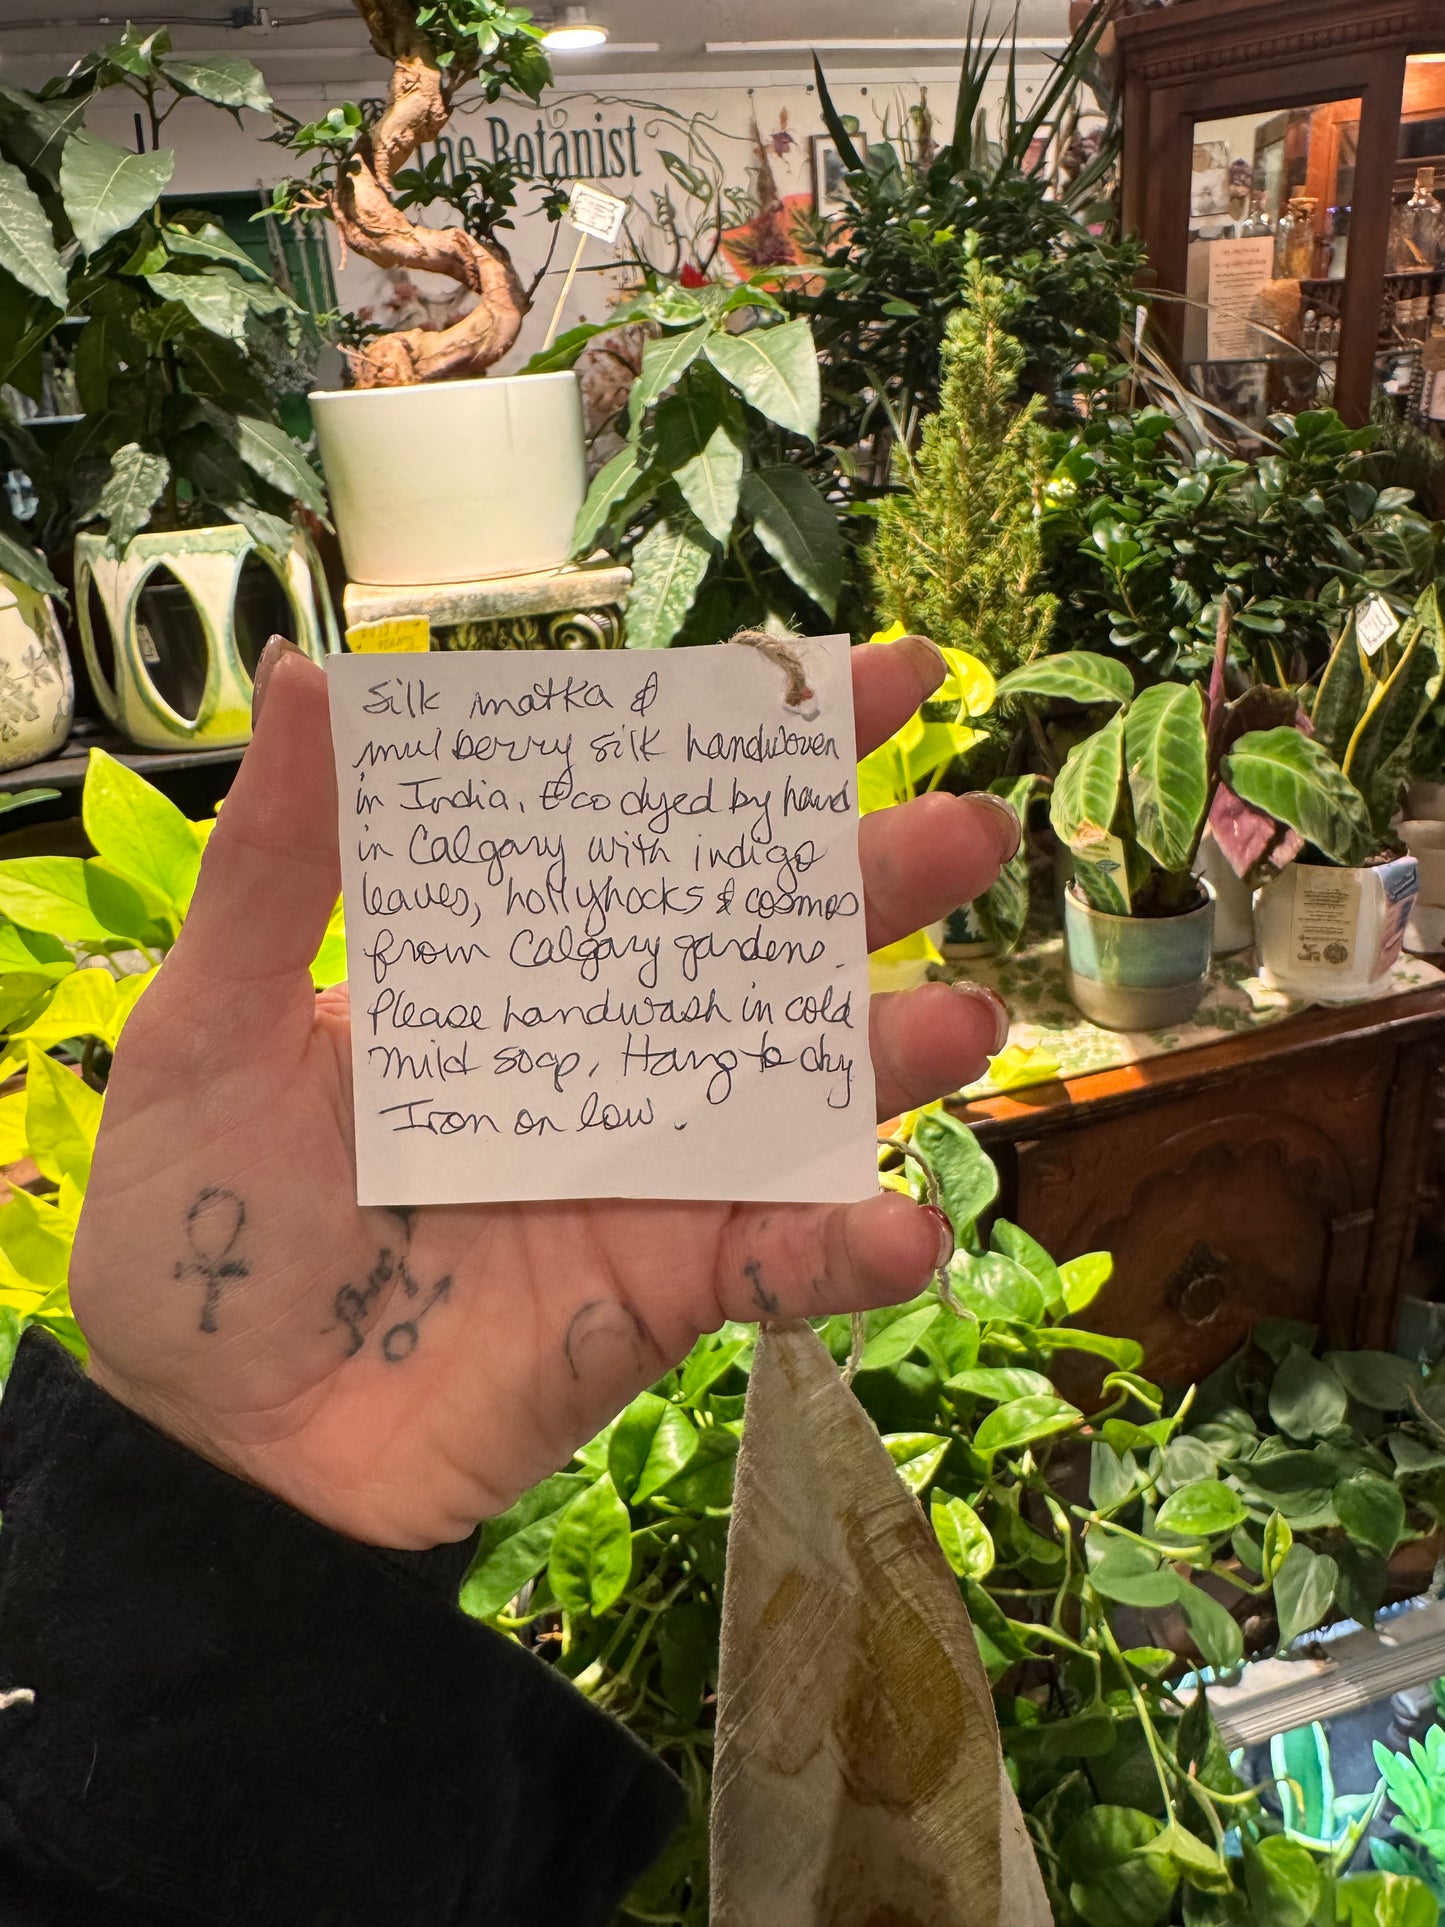 The Botanist
Silk matka &
mulberry silk handwoven
in India. Eco dyed by hand
in Calgary with indigo
leaves, hollyhocks & cosmos
from Calgary gardens.
Please handwash in cold
mild soap. Hang to dry
Iron on low.